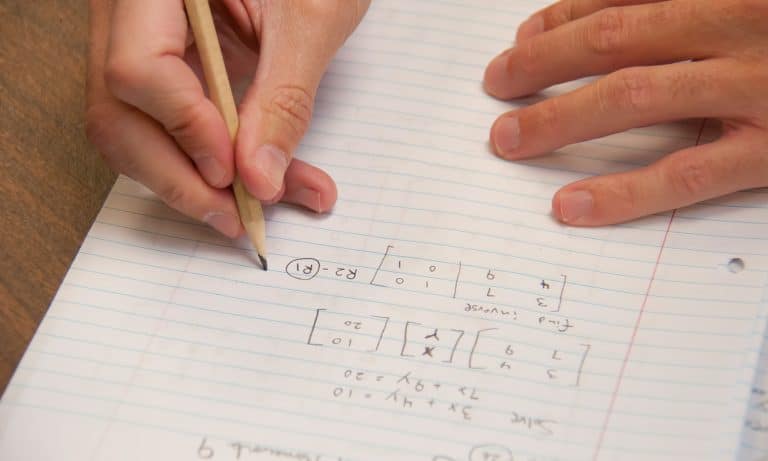 Homework 9
Solve 3x + 4y = 10
7x + 9y = 20
[ 3 4 ] [ x ] [ 10 ]
[ 7 9 ] [ y ] [ 20 ]
find inverse
[ 3 7 | 1 0 ]
[ 4 9 | 0 1 ] R2 - R1